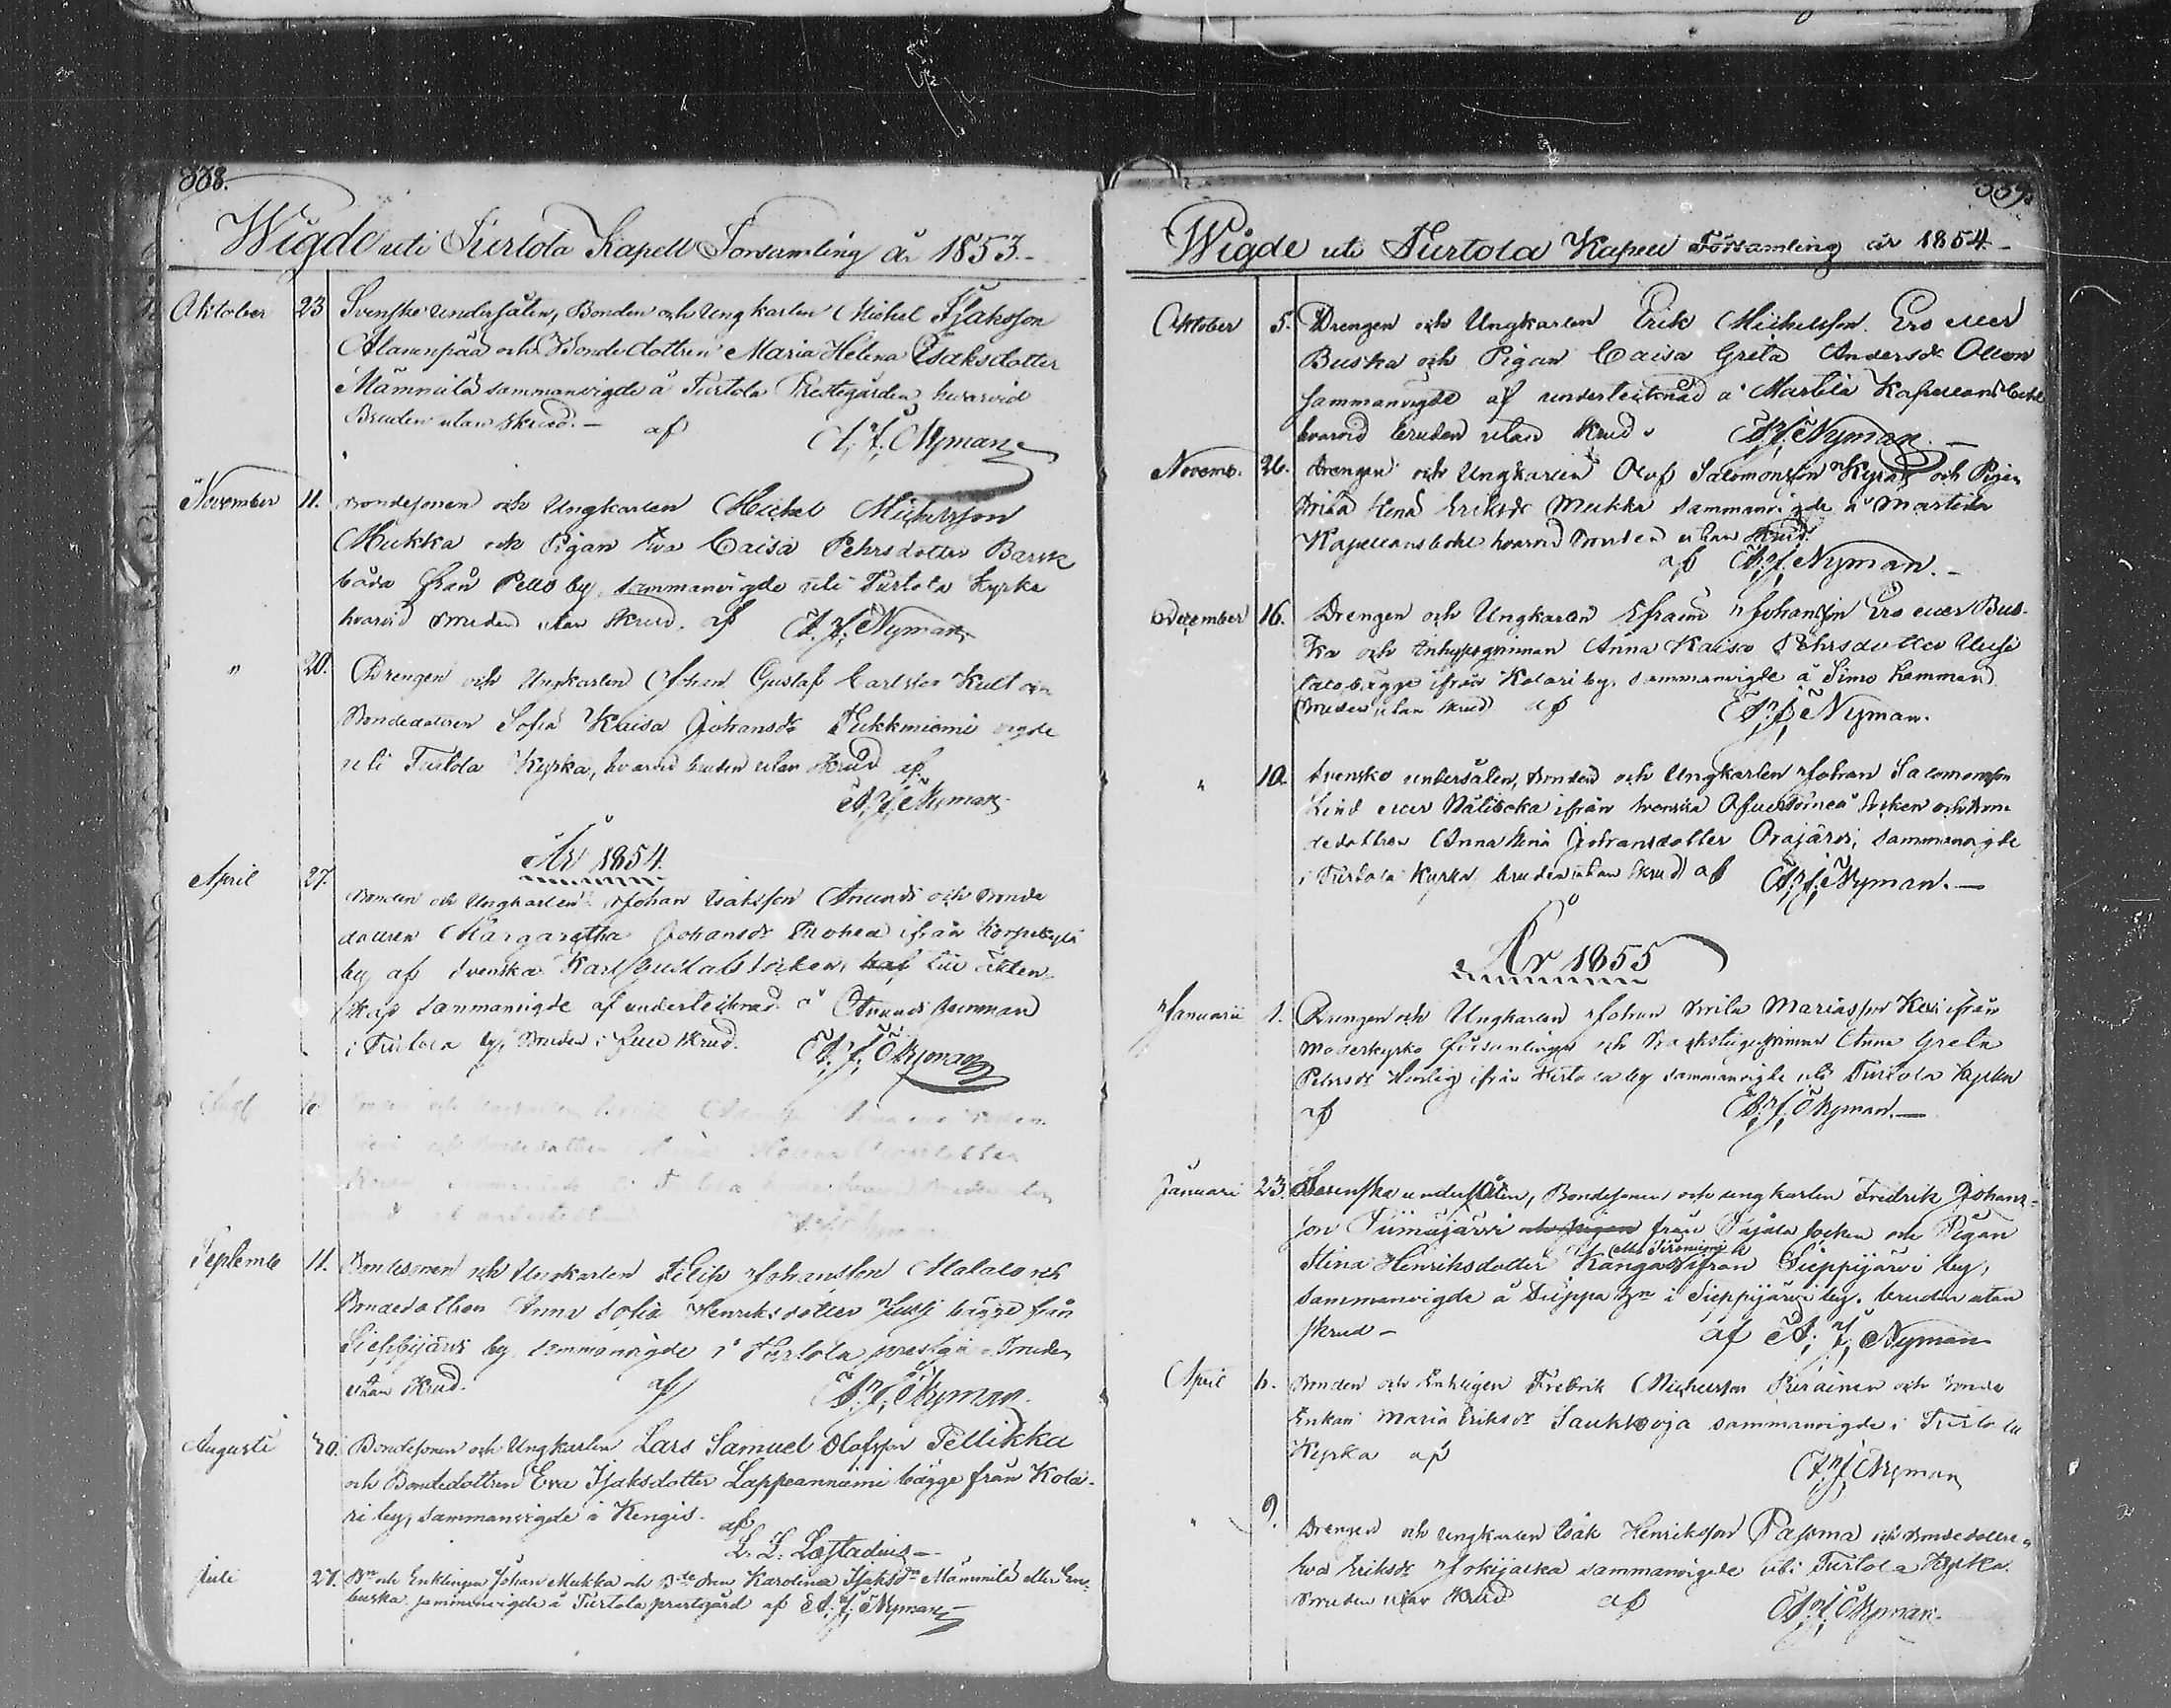 338.
Wigde uti Turtola Kapell Församling år 1853.-
Oktober 23 Svenske undersåten, Bonden och Ungkarlen Michel Isaksson
Alaenpää och Bondedottren Maria Helena Isaksdotter
Mämmilä sammanvigde å Turtola Prestegården hvarvid
Bruden utan skrud. - af A. J. Nyman
November 11. Bondesonen och Ungkarlen Michel Michelsson
Mukka och Pigan Eva Caisa Pehrsdotter Barsk
båda från Pello by, sammanvigde uti Turtola Kyrka
hvarvid bruden utan skrud. af A. J. Nyman
" 20. Drengen och Ungkarlen Johan Gustaf Carlsson Kult och
Bondedottren Sofia Kaisa Johansdr vigde
uti Turtola Kyrka, hvarvid bruden utan skrud af
A. J. Nyman
År 1854.
April 27. Bonden och Ungkarlen Johan Isaksson Anundi och Bonde
dottren Margaretha Johansdr ifrån Korpikylä
by af Svenska Karl Gustafs Socken, till äkten-
skap sammanvigde af undertecknad å Anundi hemman
i Turtola by, Bruden i full skrud. A. J. Nyman
och Ungkarlen
och Bondedottren Helena
Turtola Bruden utan
Septemb 11. Bondesonen och Ungkarlen Filip Johansson Malalo och
Bondedottren Anna Sofia Henriksdotter Jussi bägge från
Sieppijärvi by sammanvigde i Turtola prestgå Bruden
utan skrud. af A. J. Nyman
Augusti 30. Bondesonen och Ungkarlen Lars Samuel Olofsson Pellikka
och Bondedottren Eva Isaksdotter Lappeanniemi bägge från Kola-
ri by, sammanvigde å Kengis. af
L. L. Læstadius -
Juli 27. Bn och Enklingen Johan Mukka och Karolina Isaksdr Mämmilä eller Ero-
buska sammanvigde å Turtola prestgård af A. J. Nyman
339.
Wigde uti Turtola Kapell Församling år 1854 -
Oktober 5. Drengen och Ungkarlen Erik Michelsson Ero eller
Buska och Pigan Caisa Greta Andersdr Ollon
sammanvigde af undertecknad å Martila Kapellans bohl
hvarvid bruden utan skrud. A. J. Nyman -
Novemb. 26. Drengen och Ungkarlen Olof Salomonsson Kyrö och Pigan
Brita Lena Eriksdr Mukka sammanvigde å Martila
Kapellansbohl hvarvid bruden utan skrud.
af A. J. Nyman. -
December 16. Drengen och Ungkarlen Efraim Johansson Ero eller Bus-
ka och Inhysesqvinnan Anna Kaisa Pehrsdotter Uusi
talo bägge ifrån Kolari by, sammanvigde å Simo hemman
Bruden utan skrud af A. J. Nyman.
" 10. Svenske undersåten, Bonden och Ungkarlen Johan Salomonsson
Lind eller Nälisoka ifrån Svenska Öfvertorneå Socken och Bon-
dedottren Anna Stina Johansdotter Orajärvi, sammanvigde
i Turtola Kyrka, bruden utan skrud af A. J. Nyman. -
År 1855
Januarii 1. Drengen och Ungkarlen Johan Brita Mariasson Keri ifrån
Moderkyrko församlingen och Backstuguqvinnan Anna Greta
Pehrsdr ifrån Turtola by sammanvigde uti Turtola Kyrka
af A. J. Nyman. -
Januari 23. Svenska undersåten, Bondesonen och ungkarlen Fredrik Johans-
son Tiimajärvi och pigan från Pajala socken och Pigan
eller Tirroniemi
Stina Henriksdotter Kangas ifrån Sieppijärvi by,
sammanvigde å Sieppa hn i Sieppijärvi by. bruden utan
skrud - af A. J. Nyman
April 6. Bonden och Enklingen Fredrik Michelsson Piirainen och Bonde
Enkan Maria Eriksdr Saukkooja sammanvigde i Turtola
Kyrka af
A. J. Nyman
" 9. Drengen och Ungkarlen Isak Henriksson Pasoma och Bondedottren
Eva Eriksdr Jokijalka sammanvigde uti Turtola Kyrka.
Bruden utan skrud af A. J. Nyman.